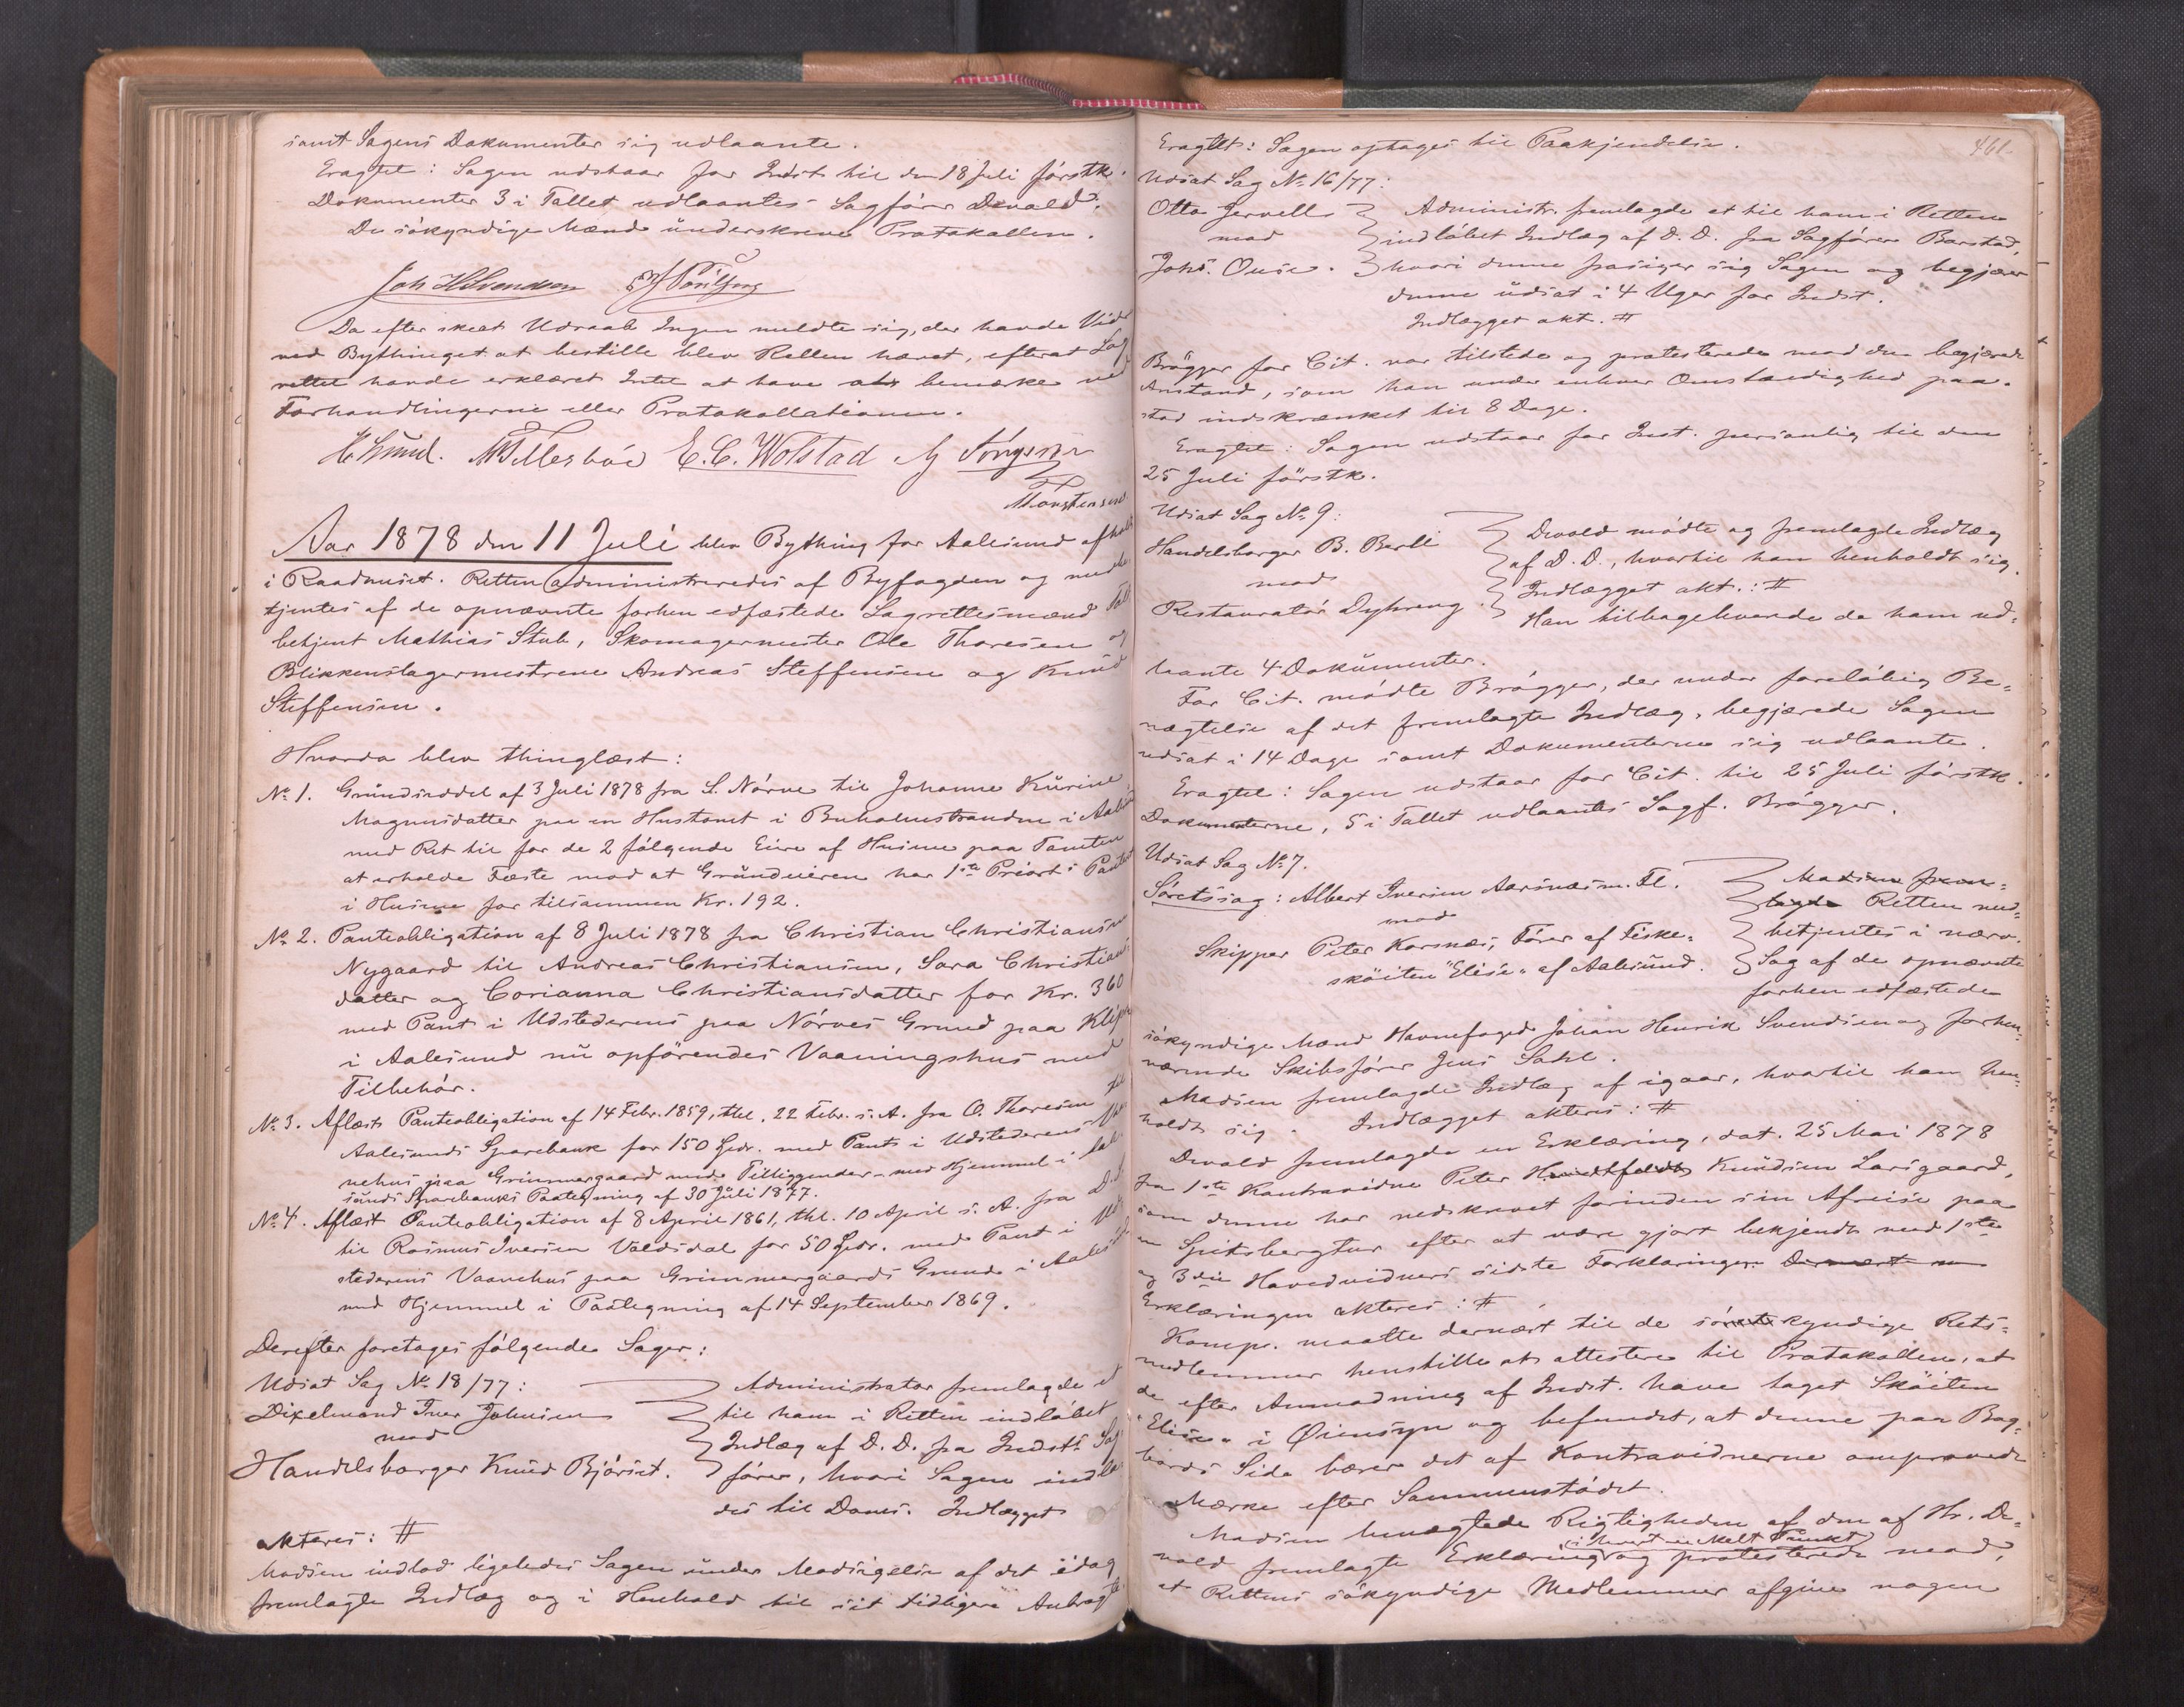 samt Sagens Dokumenter sig udlaante.
Eragtet: Sagen udstaar for Indst. til den 18 Juli förstk.
Dokumenter 3 i Tallet udlaantes Sagförer Devold.
De sökyndige Mænd underskrev Protokollen.
Joh H Svendsen
Da efter skeet Udraab Ingen meldte sig, der havde Vid
ved Bythinget at bestille blev Retten hævet, efterat Lag
rettet havde erklæret Intet at have at bemærke ved
Forhandlingerne eller Protokollationen.
E. C. Wolstad
Monstensen
Aar 1878 den 11 Juli blev Bything for Aalesund afholdt
i Raadhuset. Retten administreredes af Byfogden og med
tjentes af de opnævnte forhen edfæstede Lagrettesmænd
betjent Mathias Stub, Skomagermester Ole Thoresen og
Blikkenslagermestrene Andreas Steffensen og Knud
Steffensen.
Hvorda blev thinglæst:
No 1. Grundseddel af 3 Juli 1878 fra S. Nörve til Johanne Kurine
Magnusdatter paa en Hustomt i Buholmstranden i Aale
med Ret til for de 2 fölgende Eiere af Husene paa Tomten
at erholde Fæste mod at Grundeieren har 1ste Priort. i Pant
i Husene for tilsammen Kr. 192.
No 2. Panteobligation af 8 Juli 1878 fra Christian Christiansen
Nygaard til Andreas Christiansen, Sara Christians
datter og Corianna Christiansdatter for Kr. 360
med Pant i Udstederens paa Nörves Grund paa Klip
i Aalesund nu opförendes Vaaningshus med
Tilbehör.
No 3. Aflæst Panteobligation af 14 Febr. 1859, thl. 22 Febr. s. A. fra O. Thoresen til
Aalesunds Sparebank for 150 Spdr. med Pant i Udstederens
nehus paa Grimmergaard med Tilliggender - med Hjemmel i Aale
sunds Sparebanks Paategning af 30 Juli 1877.
No 4. Aflæst Panteobligation af 8 April 1861, thl. 10 April s. A. fra
til Rasmus Iversen Valdsdal for 50 Spdr. med Pant i
stederens Vaanehus paa Grimmergaards Grund i Aalesund
med Hjemmel i Paategning af 14 September 1869.
Derefter foretages fölgende Sager:
Udsat Sag No 18/77:
Dixelmand Iver Johnsen
mod
Handelsborger Knud Björset.
Administrator fremlagde et
til ham i Retten indlöbet
Indlæg af D. D. fra Indsts Sag
förer, hvori Sagen indla
des til Doms. Indlægget
akteres: #
Madsen indlod ligeledes Sagen under Modsigelse af det idag
fremlagte Indlæg og i Henhold til sit tidligere Anbragte.
461.
Eragtet: Sagen optages til Paakjendelse.
Udsat Sag No 16/77:
Otto Jervell
mod
Johs. Ouse.
Administr. fremlagde et til ham i Retten
indlöbet Indlæg af D. D. fra Sagförer Barstad,
hvori denne frasiger sig Sagen og begjærer
denne udsat i 4 Uger for Indst.
Indlægget akt. #
Brögger for Cit. var tilstede og protesterede mod den begjærede
Anstand, som han under enhver Omstændighed paa-
stod indskrænket til 8 Dage.
Eragtet: Sagen udstaar for Inst. personlig til den
25 Juli förstk.
Udsat Sag No 9:
Handelsborger B. Berli
mod
Restauratör Dyhreng.
Devold mödte og fremlagde Indlæg
af D. D., hvortil han henholdt sig.
Indlægget akt.: #
Han tilbageleverede de ham ud-
laante 4 Dokumenter.
For Cit. mödte Brögger, der under forelöbig Be-
nægtelse af det fremlagte Indlæg, begjærede Sagen
udsat i 14 Dage samt Dokumenterne sig udlaante.
Eragtet: Sagen udstaar for Cit. til 25 Juli förstk.
Dokumenterne, 5 i Tallet udlaantes Sagf. Brögger.
Udsat Sag No 7.
Söretssag: Albert Iversen Aarsnæs m. Fl.
mod
Skipper Peter Korsnæs, Förer af Fiske-
sköiten "Elise" af Aalesund.
Madsen frem-
lagde Retten med-
betjentes i nærv.
Sag af de opnævnte
forhen edfæstede
sökyndige Mænd Havnefoged Johan Henrik Svendsen og forhen-
værende Skibsförer Jens Sahl.
Madsen fremlagde Indlæg af igaar, hvortil han hen-
holdt sig. Indlægget akteres: #
Devold fremlagde en Erklæring, dat. 25 Mai 1878
fra 1ste Kontravidne Peter Knudsen Larsgaard,
som denne har nedskrevet forinden sin Afreise paa
en Spitsbergtur efter at være gjort bekjendt med 1ste
og 3die Hovedvidners sidste Forklaringer. Dernæst
Erklæringen akteres: #
Komp. maatte dernæst til de sökyndige Rets-
medlemmer henstille at attestere til Protokollen, at
de efter Anmodning af Indst. have taget Sköiten
"Elise" i Öiensyn og befundet, at denne paa Bag-
bords Side bærer det af Kontravidnerne omprovede
Mærke efter Sammenstödet.
Madsen benægtede Rigtigheden af den af Hr. De-
vold fremlagte Erklæring i hvert et Punkt og protesterede mod,
at Rettens sökyndige Medlemmer afgive nogen